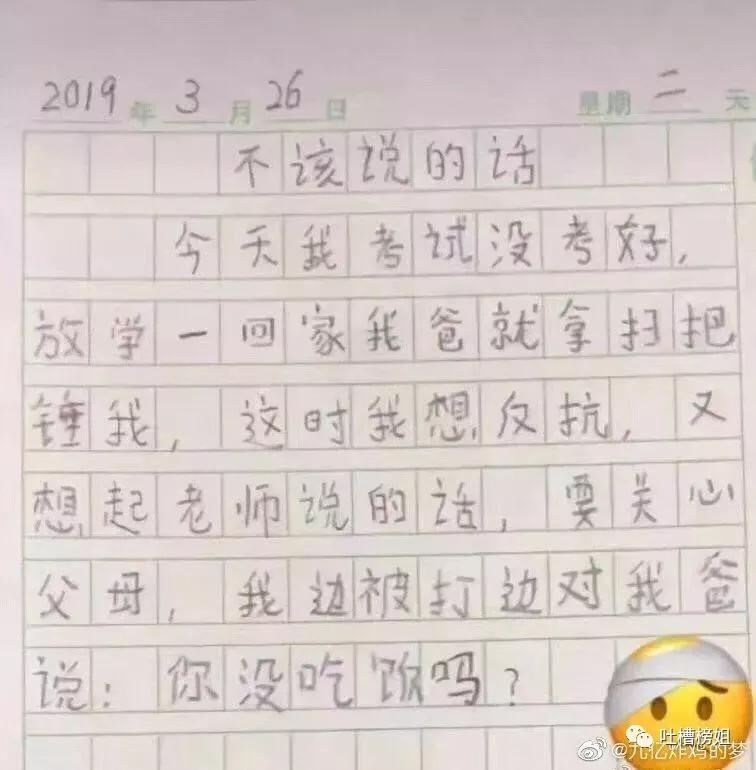 2019年3月26日 星期二 天
不该说的话
今天我考试没考好,
放学一回家我爸就拿扫把
锤我,这时我想反抗,又
想起老师说的话,要关心
父母,我边被打边对我爸
说:你没吃饭吗?
吐槽榜姐
@九亿炸鸡的梦